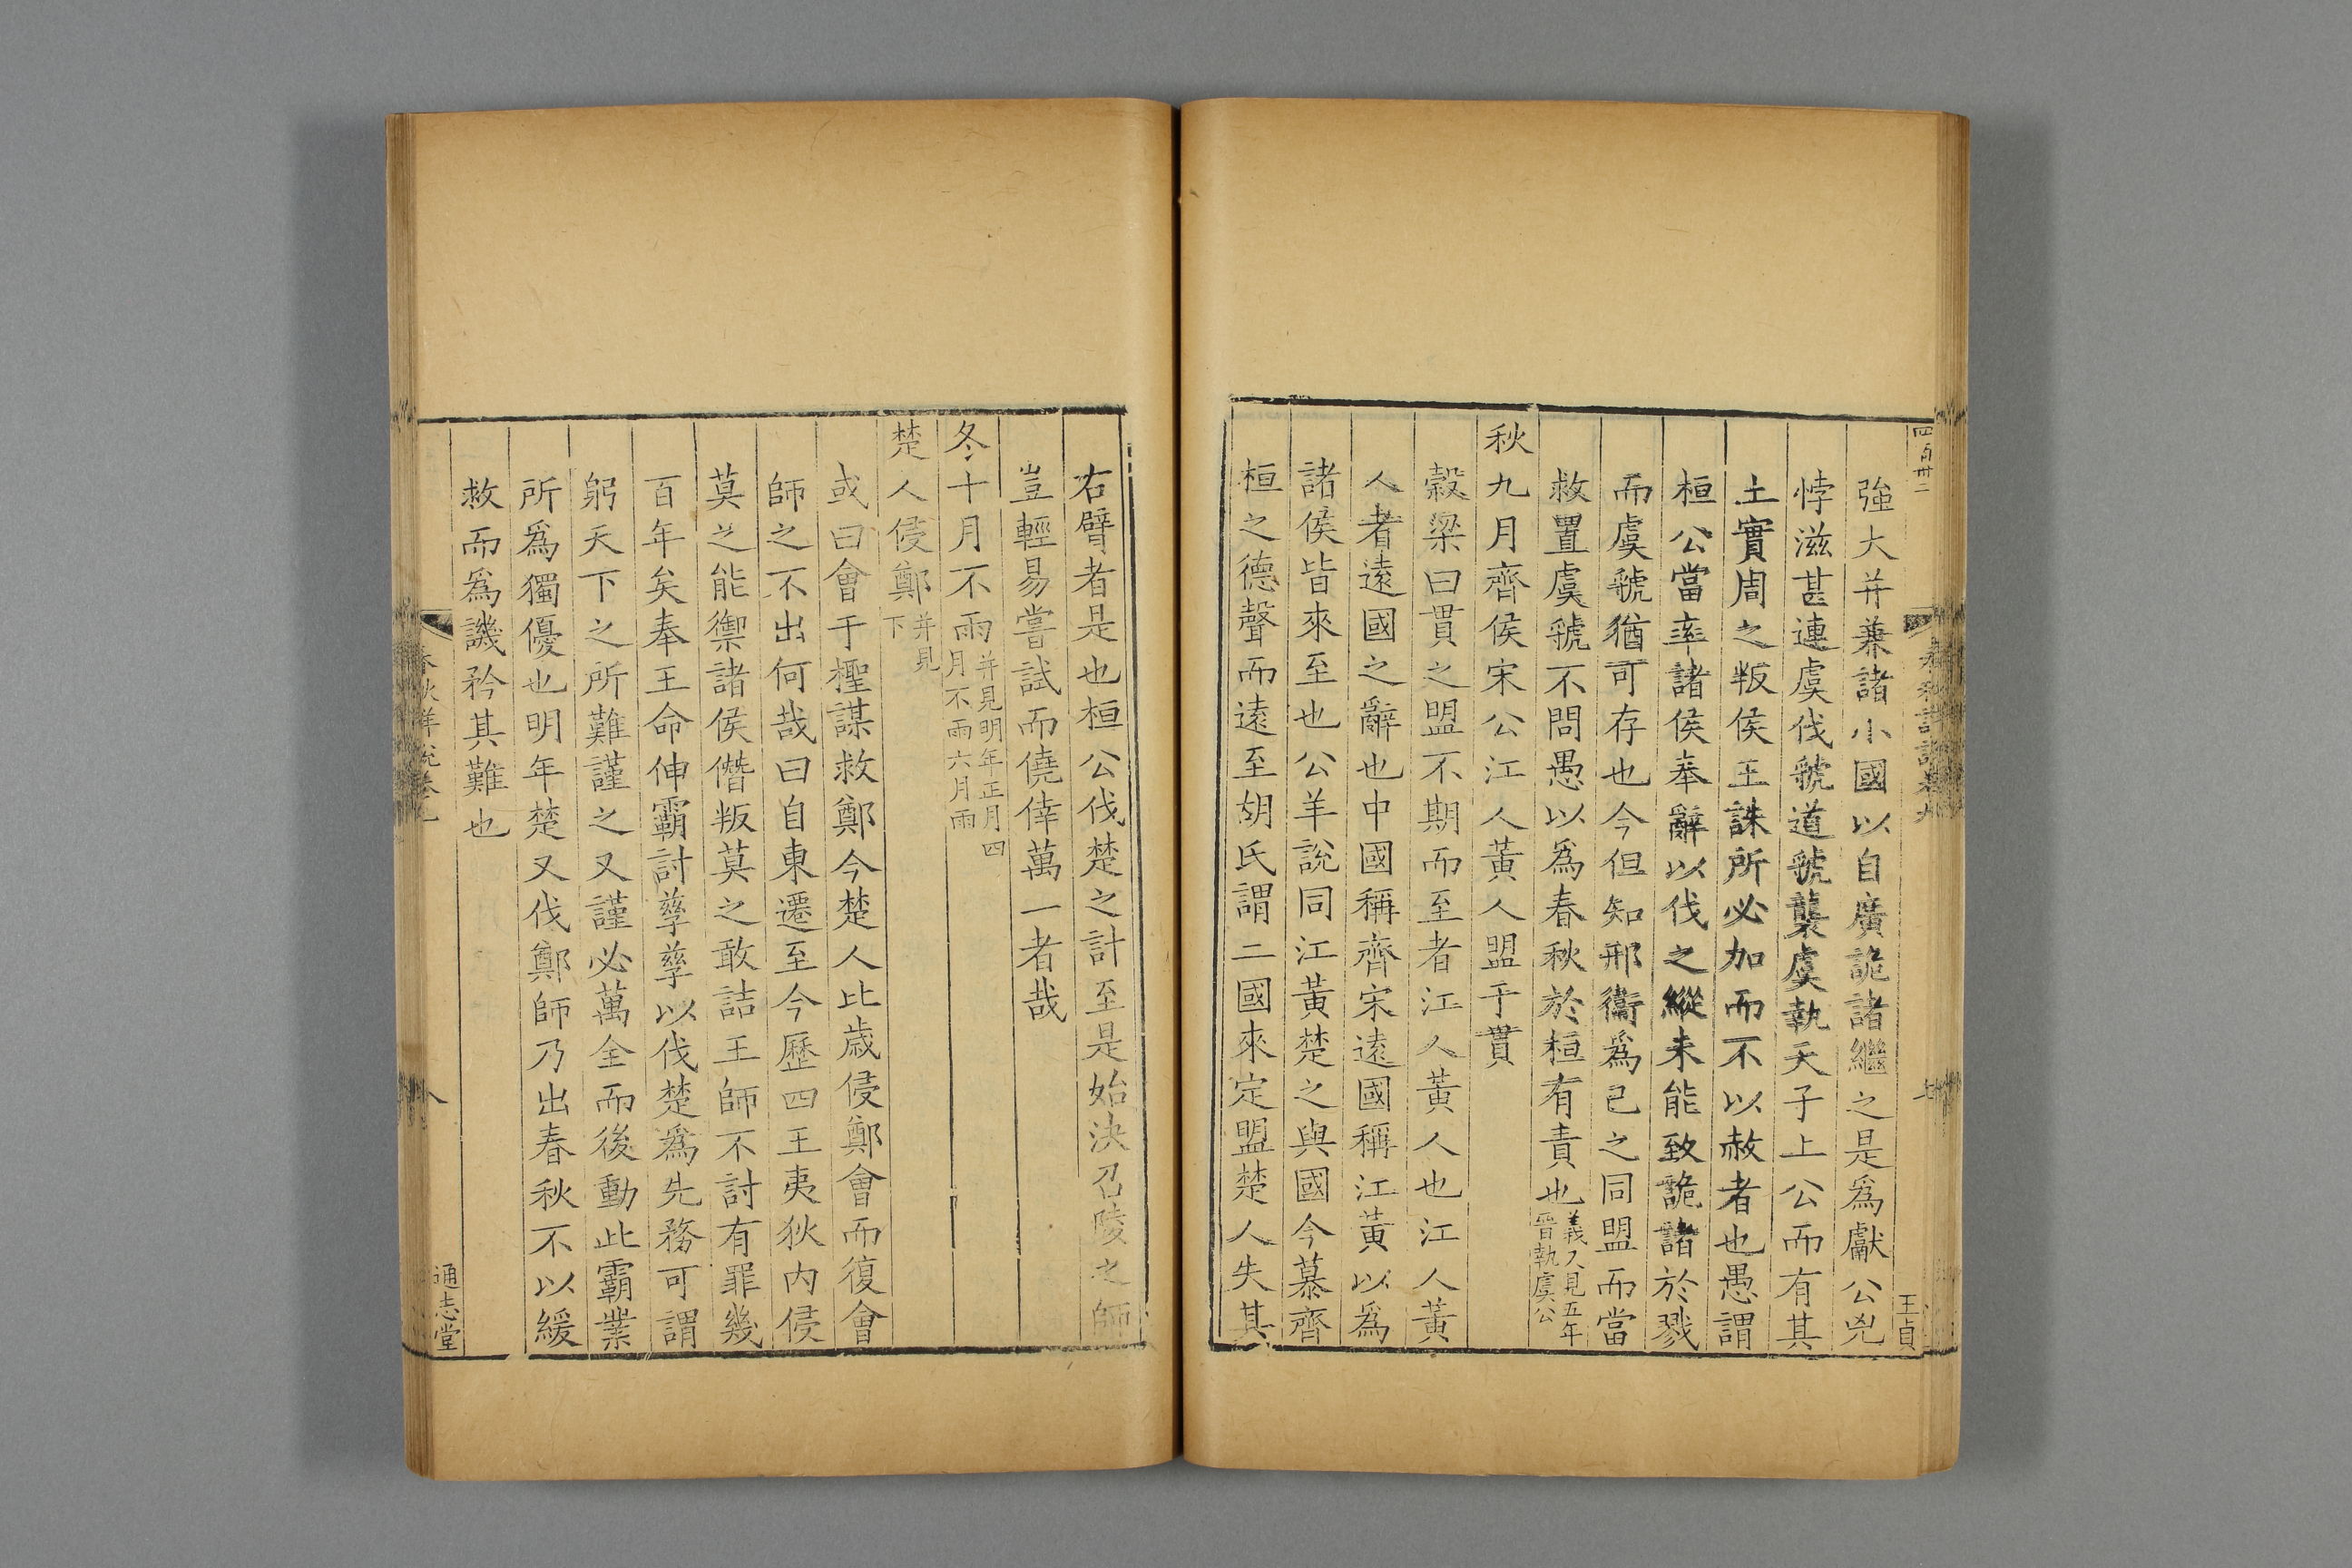 四百卅二
春秋詳說卷九
七
王貞
強大并兼諸小國以自廣詭諸繼之是爲獻公兇
悖滋甚連虞伐虢道虢襲虞執天子上公而有其
土實周之叛侯王誅所必加而不以赦者也愚謂
桓公當率諸侯奉辭以伐之縱未能致詭諸於戮
而虞虢猶可存也今但知邢衞爲已之同盟而當
救置虞虢不問愚以爲春秋於桓有責也義又見五年
晉執虞公
秋九月齊侯宋公江人黃人盟于貫
穀梁曰貫之盟不期而至者江人黃人也江人黃
人者遠國之辭也中國稱齊宋遠國稱江黃以爲
諸侯皆來至也公羊說同江黃楚之與國今慕齊
桓之德聲而遠至胡氏謂二國來定盟楚人失其
右臂者是也桓公伐楚之計至是始決召陵之師
豈輕易嘗試而僥倖萬一者哉
冬十月不雨并見明年正月四
月不雨六月雨
楚人侵鄭并見
下
或曰會于檉謀救鄭今楚人比歲侵鄭會而復會
師之不出何哉曰自東遷至今歷四王夷狄內侵
莫之能禦諸侯僭叛莫之敢詰王師不討有罪幾
百年矣奉王命伸霸討孳孳以伐楚爲先務可謂
躬天下之所難謹之又謹必萬全而後動此霸業
所爲獨優也明年楚又伐鄭師乃出春秋不以緩
救而爲譏矜其難也
春秋詳說卷九
八
通志堂